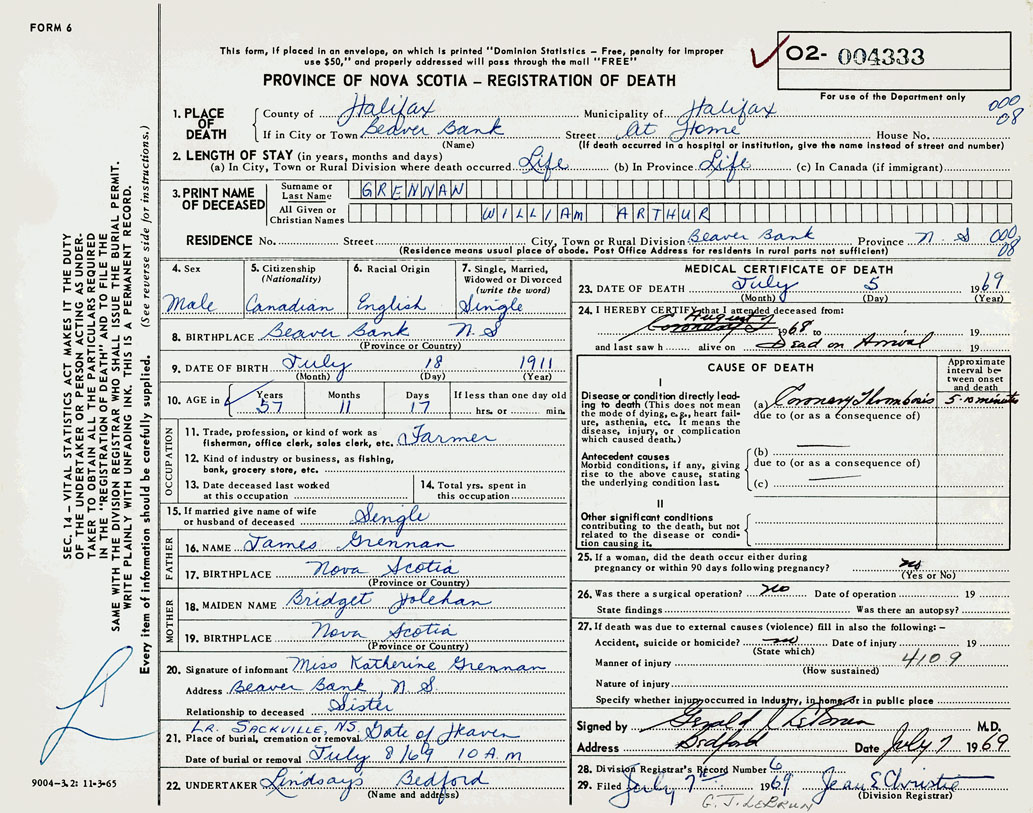 FORM 6
This form, if placed in an envelope, on which is printed "Dominion Statistics – Free, penalty for improper
use $50," and properly addressed will pass through the mail "FREE"
PROVINCE OF NOVA SCOTIA – REGISTRATION OF DEATH
O2- 004333
For use of the Department only
000
08
1. PLACE OF DEATH
County of Halifax Municipality of Halifax
If in City or Town Beaver Bank Street At Home House No.
(Name) (If death occurred in a hospital or institution, give the name instead of street and number)
2. LENGTH OF STAY (in years, months and days)
(a) In City, Town or Rural Division where death occurred Life (b) In Province Life (c) In Canada (if immigrant)
3. PRINT NAME OF DECEASED
Surname or Last Name GRENNAN
All Given or Christian Names WILLIAM ARTHUR
RESIDENCE No. Street City, Town or Rural Division Beaver Bank Province N. S 000
08
(Residence means usual place of abode. Post Office Address for residents in rural parts not sufficient)
4. Sex
Male
5. Citizenship
(Nationality)
Canadian
6. Racial Origin
English
7. Single, Married, Widowed or Divorced
(write the word)
Single
8. BIRTHPLACE Beaver Bank N. S
(Province or Country)
9. DATE OF BIRTH July 18 1911
(Month) (Day) (Year)
10. AGE in Years Months Days If less than one day old
57 11 17 hrs. or min.
OCCUPATION
11. Trade, profession, or kind of work as
fisherman, office clerk, sales clerk, etc. Farmer
12. Kind of industry or business, as fishing,
bank, grocery store, etc.
13. Date deceased last worked
at this occupation
14. Total yrs. spent in
this occupation
15. If married give name of wife
or husband of deceased Single
FATHER
16. NAME James Grennan
17. BIRTHPLACE Nova Scotia
(Province or Country)
MOTHER
18. MAIDEN NAME Bridget Holehan
19. BIRTHPLACE Nova Scotia
(Province or Country)
20. Signature of informant Miss Katherine Grennan
Address Beaver Bank, N. S.
Relationship to deceased Sister
LR. SACKVILLE, NS.
21. Place of burial, cremation or removal Gate of Heaven
Date of burial or removal July 8/69 10 A.M
22. UNDERTAKER Lindsays Bedford
(Name and address)
MEDICAL CERTIFICATE OF DEATH
23. DATE OF DEATH July 5 1969
(Month) (Day) (Year)
24. I HEREBY CERTIFY that I attended deceased from:
August
1968 to 19
and last saw h alive on Dead on Arrival 19
CAUSE OF DEATH
Approximate interval between onset and death
I
Disease or condition directly leading to death (This does not mean the mode of dying, e.g., heart failure, asthenia, etc. It means the disease, injury, or complication which caused death.)
(a) Coronary Thrombosis 5-10 minutes
due to (or as a consequence of)
Antecedent causes
Morbid conditions, if any, giving rise to the above cause, stating the underlying condition last.
(b)
due to (or as a consequence of)
(c)
II
Other significant conditions
contributing to the death, but not related to the disease or condition causing it.
25. If a woman, did the death occur either during
pregnancy or within 90 days following pregnancy?
(Yes or No)
26. Was there a surgical operation? no Date of operation 19
State findings Was there an autopsy?
27. If death was due to external causes (violence) fill in also the following: –
Accident, suicide or homicide? no Date of injury 19
(State which)
Manner of injury 4109
(How sustained)
Nature of injury
Specify whether injury occurred in Industry, in home, or in public place
Signed by Gerald J LeBrun M.D.
Address Bedford Date July 7 1969
28. Division Registrar's Record Number 6
29. Filed July 7th 1969 Jean E Christie
(Division Registrar)
G. J. LEBRUN
SEC. 14 – VITAL STATISTICS ACT MAKES IT THE DUTY
OF THE UNDERTAKER OR PERSON ACTING AS UNDER-
TAKER TO OBTAIN ALL THE PARTICULARS REQUIRED
IN THE "REGISTRATION OF DEATH" AND TO FILE THE
SAME WITH THE DIVISION REGISTRAR WHO SHALL ISSUE THE BURIAL PERMIT.
WRITE PLAINLY WITH UNFADING INK. THIS IS A PERMANENT RECORD.
Every item of information should be carefully supplied. (See reverse side for instructions.)
9004–3.2: 11-3-65